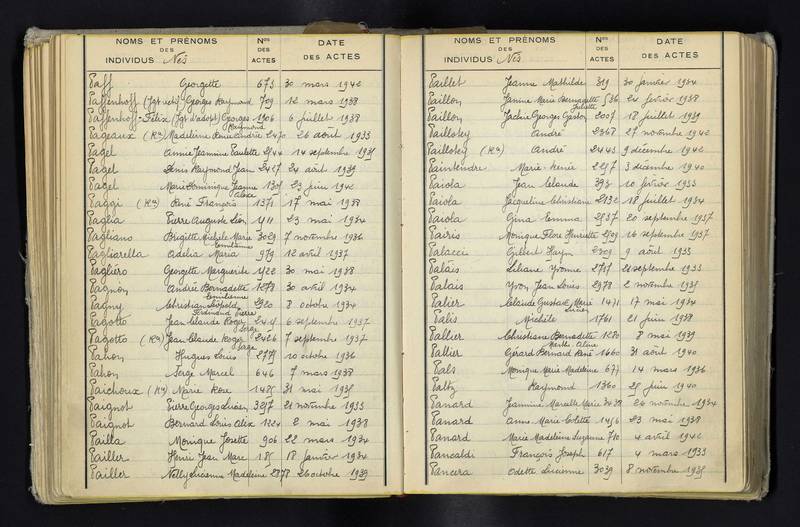 NOMS ET PRÉNOMS DES INDIVIDUS Nés Nos DES ACTES DATE DES ACTES
Paff Georgette 673 30 mars 1942
Paffenhoff (Jgt rect) Georges Raymond 709 12 mars 1938
Paffenhoff-Félix (Jgt d'adopt) Georges Raymond 1906 6 juillet 1938
Pageaux (Ron) Madeleine Renée Andrée 2470 26 août 1933
Pagel Annie Jeannine Paulette 2544 14 septembre 1935
Pagel Denis Raymond Jean 2457 24 août 1939
Pagel Marie Dominique Jeanne 1305 23 juin 1942
Paggi (Ron) René François 1371 17 mai 1938
Paglia Pierre Auguste Léon 1411 23 mai 1934
Pagliano Brigitte Michèle Marie 3029 7 novembre 1936
Pagliarella Adelia Maria 979 12 avril 1937
Pagliero Georgette Marguerite 1422 30 mai 1938
Pagnon André Bernadette 1278 30 avril 1934
Pagny Christian Léopold 2920 8 octobre 1934
Pagotto Ferdinand Pierre Jean Claude Roger Serge 6 septembre 1937
Pagotto (Ron) Jean Claude Roger Serge 2426 7 septembre 1937
Pahon Hugues Louis 2779 10 octobre 1936
Pahon Serge Marcel 646 7 mars 1938
Paichoux (Ron) Marie Rose 1485 31 mai 1935
Paignot Pierre Georges Lucien 3257 21 novembre 1933
Paignot Bernard Louis Alix 1224 2 mai 1938
Pailla Monique Josette 906 22 mars 1934
Pailler Henri Jean Marc 185 18 janvier 1934
Pailler Nelly Lucienne Madeleine 2878 26 octobre 1939
NOMS ET PRÉNOMS DES INDIVIDUS Nés Nos DES ACTES DATE DES ACTES
Paillet Jeanne Mathilde 319 30 janvier 1934
Paillon Janine Marie Bernadette Juliette 536 24 février 1938
Paillon Jackie Georges Gaston 2007 18 juillet 1939
Paillotey André 2368 27 novembre 1942
Paillotey (Ron) André 2443 9 décembre 1942
Paintendre Marie Renée 2257 3 décembre 1940
Paiola Jean Claude 393 10 février 1933
Paiola Jacqueline Christiane 2132 18 juillet 1934
Paiola Gina Emma 2537 20 septembre 1937
Pairis Monique Flore Henriette 2509 16 septembre 1937
Palacci Gilbert Haym 2309 9 août 1933
Palais Liliane Yvonne 2717 21 septembre 1933
Palais Yvon Jean Louis 2978 2 novembre 1935
Palier Claude Gustave Marie 1471 17 mai 1934
Palis Michèle 1761 21 juin 1938
Pallier Christiane Bernadette 1280 8 mai 1939
Pallier Gérard Bernard René 1660 31 août 1940
Pals Monique Marie Madeleine 677 14 mars 1936
Paltz Raymond 1360 25 juin 1940
Panard Jeannine Marcelle Marie 3438 26 novembre 1934
Panard Anne Marie Colette 1456 23 mai 1938
Panard Marie Madeleine Suzanne 710 4 avril 1942
Pancaldi François Joseph 617 4 mars 1933
Pancera Odette Lucienne 3039 8 novembre 1935